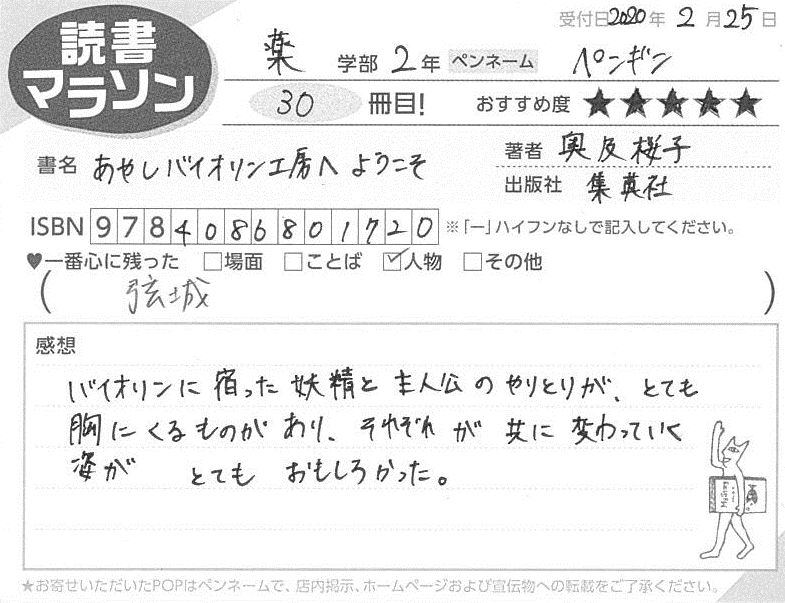 読書
マラソン
受付日2020年2月25日
薬 学部 2年 ペンネーム ペンギン
30 冊目! おすすめ度 ★★★★★
書名 あやしバイオリン工房へようこそ
著者 奥乃桜子
出版社 集英社
ISBN 9784086801720 ※「ー」ハイフンなしで記入してください。
♥一番心に残った □場面 □ことば ☑人物 □その他
( 弦城 )
感想
バイオリンに宿った妖精と主人公のやりとりが、とても
胸にくるものがあり、それぞれが共に変わっていく
姿が とても おもしろかった。
★お寄せいただいたPOPはペンネームで、店内掲示、ホームページおよび宣伝物への転載をご了承ください。